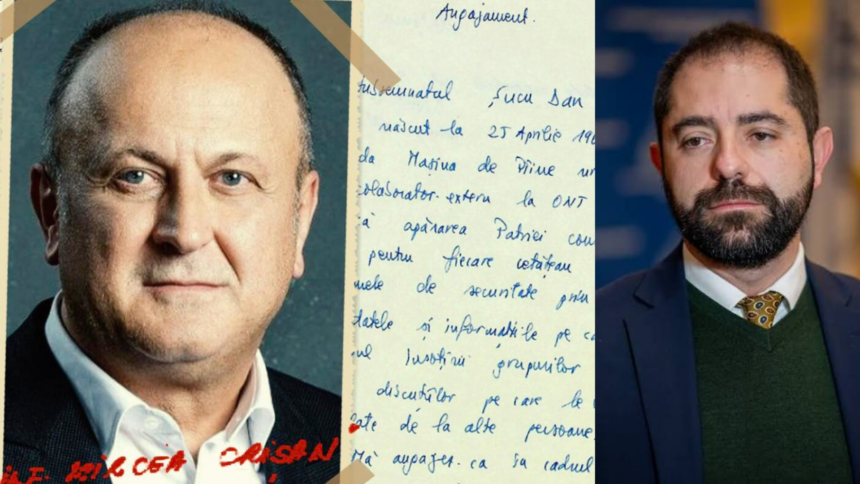 Angajament.
Subsemnatul Șucu Dan
născut la 25 Aprilie 196
da Mașina de Pîine nr
colaborator extern la ONT
că apărarea Patriei
pentru fiecare cetățean
mele de securitate prin
datele și informațiile pe ca
ul însoțirii grupurilor
discuțiilor pe care le
ate de la alte persoane.
Mă angajez ca în cadrul
INF. MIRCEA CRISAN